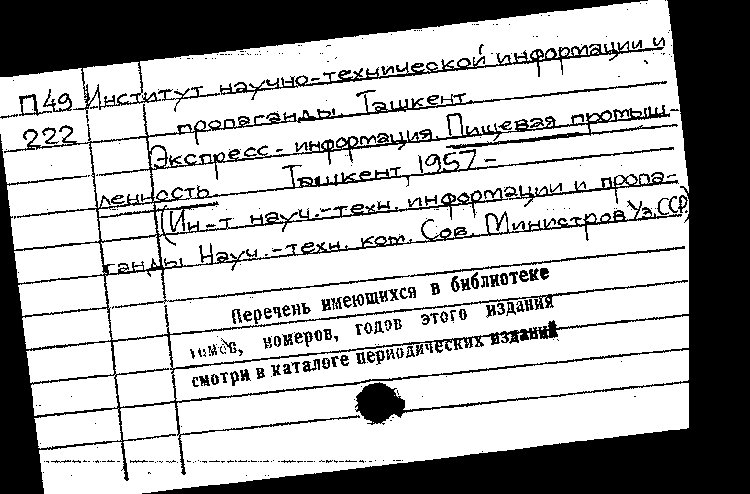 П49 Институт научно-технической информации и
222 пропаганды. Ташкент.
Экспресс-информация. Пищевая промыш-
ленность. Ташкент, 1957-
(Ин-т науч.-техн. информации и пропа-
ганды Науч.-техн. ком. Сов. Министров Уз.ССР)
Перечень имеющихся в библиотеке
томов, номеров, годов этого издания
смотри в каталоге периодических изданий